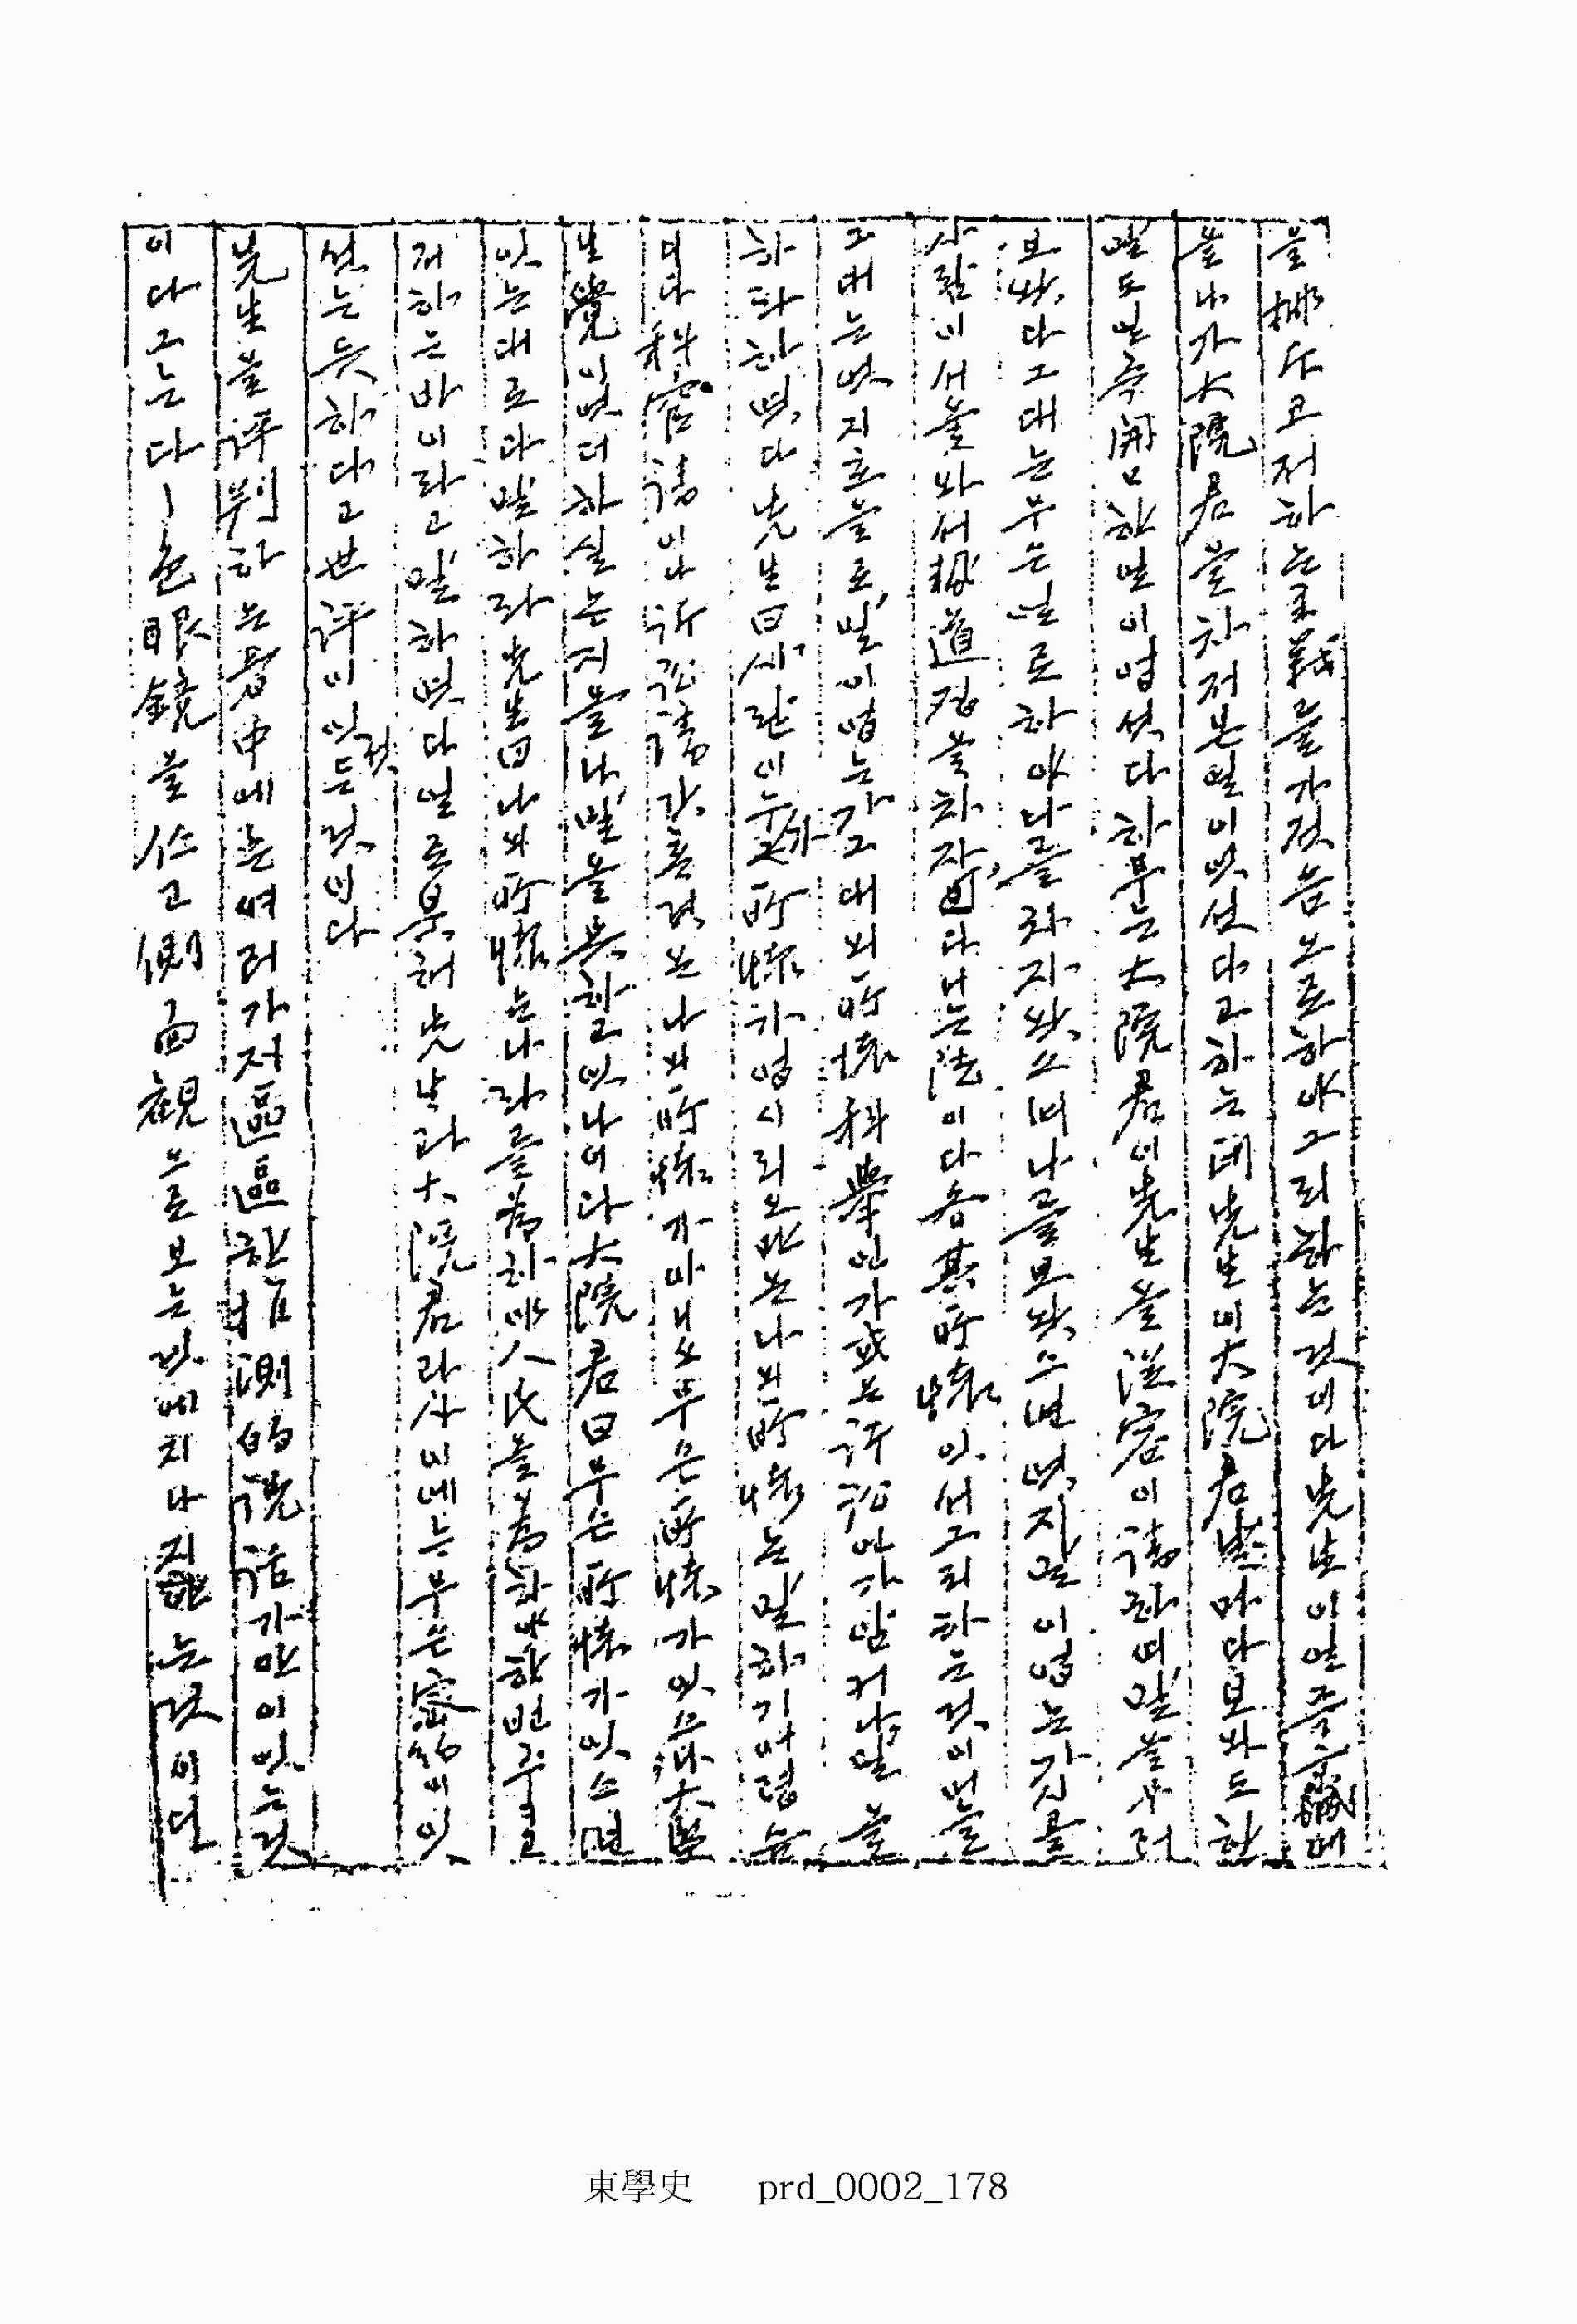 을 掃나코저 하는 主義를 가젓슴으로하야 그리하는 것이다 先生이 일즉 京城에
올나가 大院君을 차저본 일이 잇섯다고 하는대 先生이 大院君 마다 보와도 한
말도 일즉 開口한 일이 업섯다 하루는 大院君이 先生을 從容이 請하며 말을 부처
보왓다 그대는 무슨 일로 하야 나를 차자왓스며 나를 보왓으면 엇지 말이 업는가 시골
사람이 서울 와서 勢道집을 차자 단니는 法이다 各其 所懷 잇서 그리하는 것이어늘
그대는 엇지 호을로 말이 업는가 그대의 所懷 科擧인가 或은 訴訟인가 암커나 말을
하라 하엿다 先生曰 사람이 누가 所懷가 업시리오만은 나의 所懷는 말하기 어렵슴
니다 科宦 請이나 訴訟請 갓흔 것은 나의 所懷가 아니오 무슨 所懷가 잇으나 大監
生覺이 엇더하실는지 몰나 말을 못하고 잇나이다 大院君曰 무슨 所懷가 잇스면
잇는대로 다 말하라 先生曰 나의 所懷는 나라를 爲하야 人民을 爲하야 한번 주고
저 하는 바이라고 말하엿다 일로붓허 先生과 大院君 라사이에는 무슨 密約이 잇
섯는 듯하다고 世評이 잇섯든 것이다
先生을 評判하는 者 中에는 여러가저 區區한 臆測的 說話가 만이 잇는 것
이다 그는 다ㅣ 色眼鏡을 쓰고 側面觀으로 보는 것에 지나지 안는 것이다